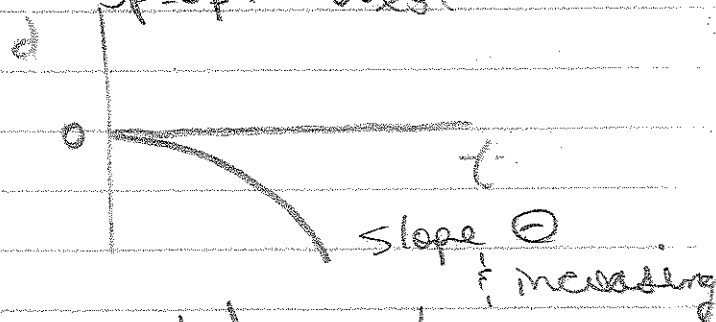 d
0
t
slope ⊖
& increasing